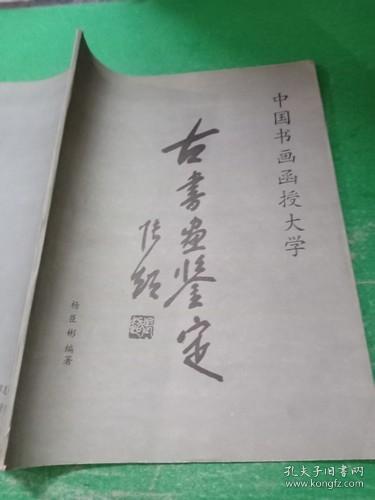 中国书画函授大学
古书画鉴定
杨臣彬 编著
孔夫子旧书网
www.kongfz.com